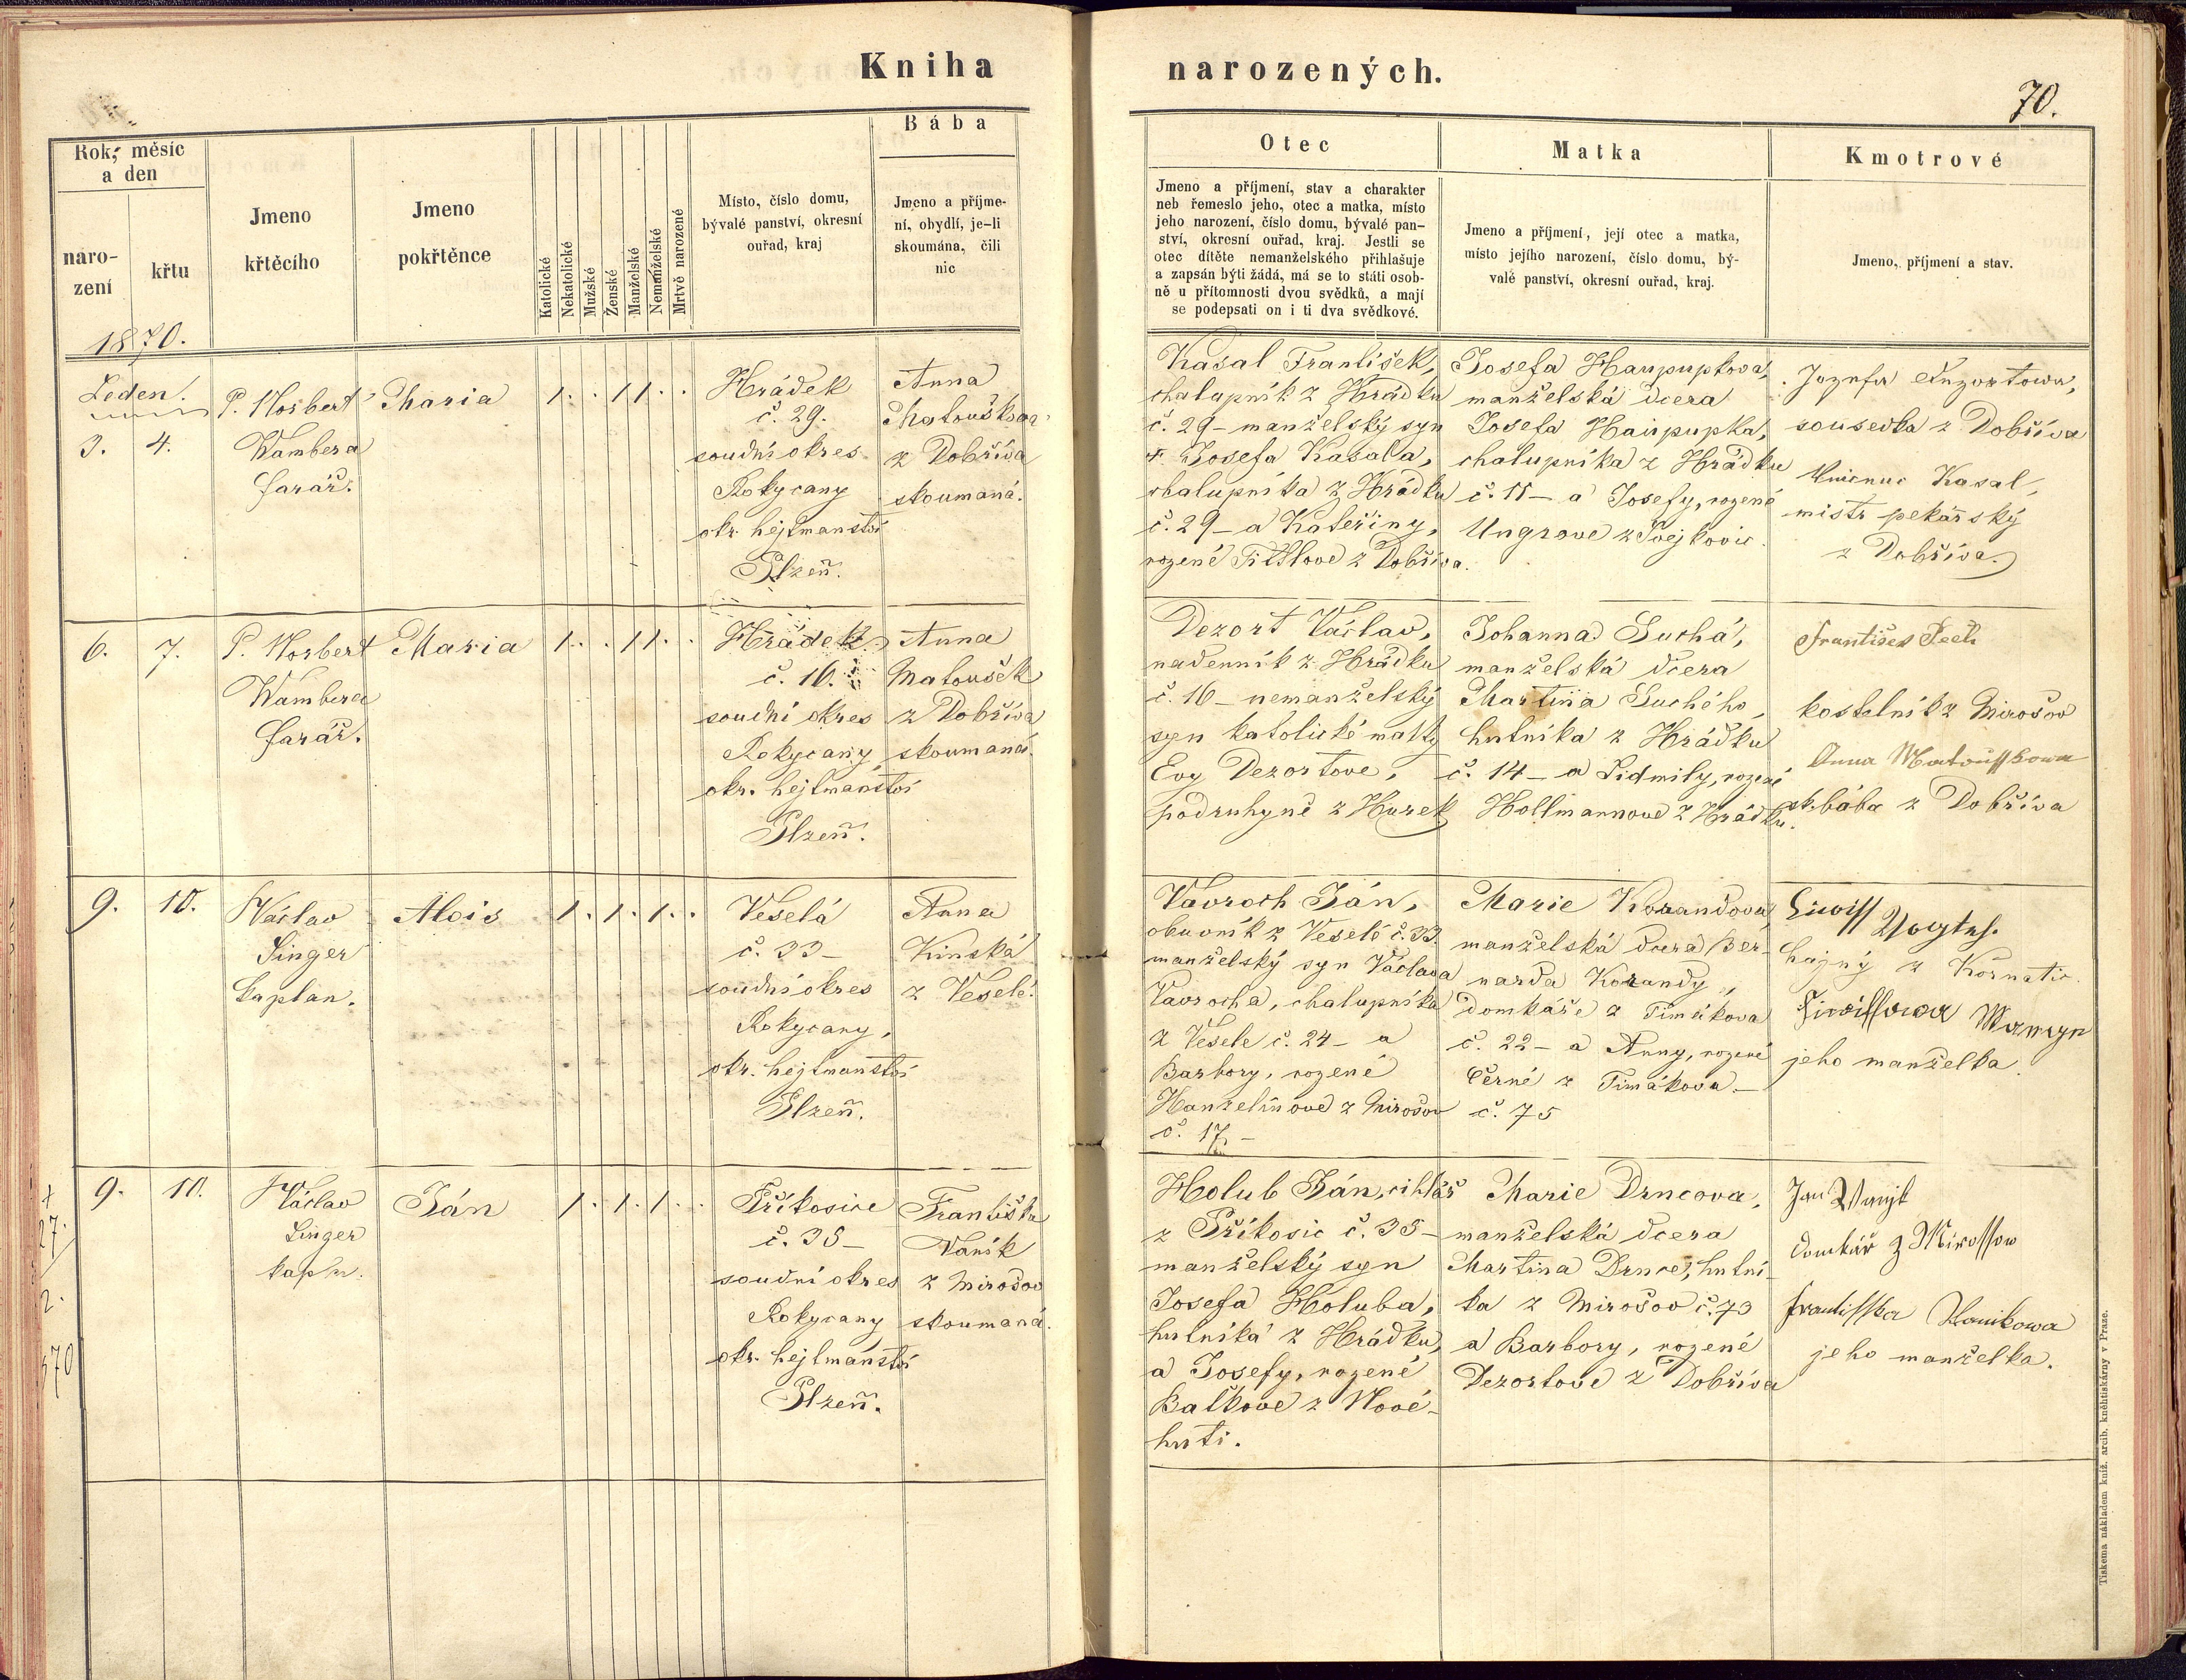 Kniha narozených.
70.
Rok, měsíc
a den
naro-
zení
křtu
Jmeno
křtěcího
Jmeno
pokřtěnce
Katolické
Nekatolické
Mužské
Ženské
Manželské
Nemanželské
Mrtvě narozené
Místo, číslo domu,
bývalé panství, okresní
ouřad, kraj
Bába
Jmeno a příjme-
ní, obydlí, je-li
skoumána, čili
nic
Otec
Jmeno a příjmení, stav a charakter
neb řemeslo jeho, otec a matka, místo
jeho narození, číslo domu, bývalé pan-
ství, okresní ouřad, kraj. Jestli se
otec dítěte nemanželského přihlašuje
a zapsán býti žádá, má se to státi osob-
ně u přítomnosti dvou svědků, a mají
se podepsati on i ti dva svědkové.
Matka
Jmeno a příjmení, její otec a matka,
místo jejího narození, číslo domu, bý-
valé panství, okresní ouřad, kraj.
Kmotrové
Jmeno, příjmení a stav.
1870.
Leden.
3. 4.
P. Norbert
Wambera
farář.
Maria
1 . . 1 1 . .
Hrádek
č. 29.
soudní okres
Rokycany
okr. hejtmanství
Plzeň.
Anna
Matoušková
z Dobříva
skoumaná.
Kasal František,
chalupník z Hrádku
č. 29 – manželský syn
Josefa Kasala,
chalupníka z Hrádku
č. 29 – a Kateřiny,
rozené z Dobříva.
Josefa
manželská dcera
Josefa
chalupníka z Hrádku
č. 11 – a Josefy, rozené
Ungrove z
sousedka z Dobříva
Kasal,
mistr pekařský
z Dobříva.
6. 7.
P. Norbert
Wambera
farář.
Maria
1 . . 1 1 . .
Hrádek
č. 16.
soudní okres
Rokycany
okr. hejtmanství
Plzeň.
Anna
Matoušek
z Dobříva
skoumaná.
Dezort Václav,
nadenník z Hrádku
č. 16 – nemanželský
syn katolické matky
Evy Dezortove,
podruhyně z Hurek
Johanna Suchá,
manželská dcera
Martina Suchého,
hutníka z Hrádku
č. 14 – a Lidmily, rozené
Hollmannove z Hrádku.
František
kostelník z Mirošov
Anna Matouſſkowa
sk. bába z Dobříva
9. 10.
Václav
Singer
kaplan.
Alois
1 . 1 . 1 . .
Veselá
č. 33 –
soudní okres
Rokycany,
okr. hejtmanství
Plzeň.
Anna
Kinská
z Veselé.
Vavroch Ján,
obuvník z Veselé č. 33.
manželský syn Václava
Vavrocha, chalupníka
z Vesele č. 24 – a
Barbory, rozené
Hanzelínove z Mirošov
č. 17. –
Marie Korandova,
manželská dcera Ber-
narda Korandy,
domkáře z Timákova
č. 22 – a Anny, rozené
Černé z Timákova. –
č. 75
hajný z Kornatic.
jeho manželka.
9. 10.
Václav
Singer
kapln.
Ján
1 . 1 . 1 . .
Příkosice
č. 35 –
soudní okres
Rokycany
okr. hejtmanství
Plzeň.
Františka
Vaník
z Mirošov
skoumaná.
Holub Ján, cihlář
z Příkosic č. 35 –
manželský syn
Josefa Holuba,
hutníka z Hrádku,
a Josefy, rozené
Balkove z Nové-
huti.
Marie Drncova,
manželská dcera
Martina Drnce, hutní-
ka z Mirošov č. 73
a Barbory, rozené
Dezortove z Dobříva
Jan
domkář z Miroſſow
Frantiſſka Wanikowa
jeho manželka.
Tiskem a nákladem kníž. arcib. kněhtiskárny v Praze.